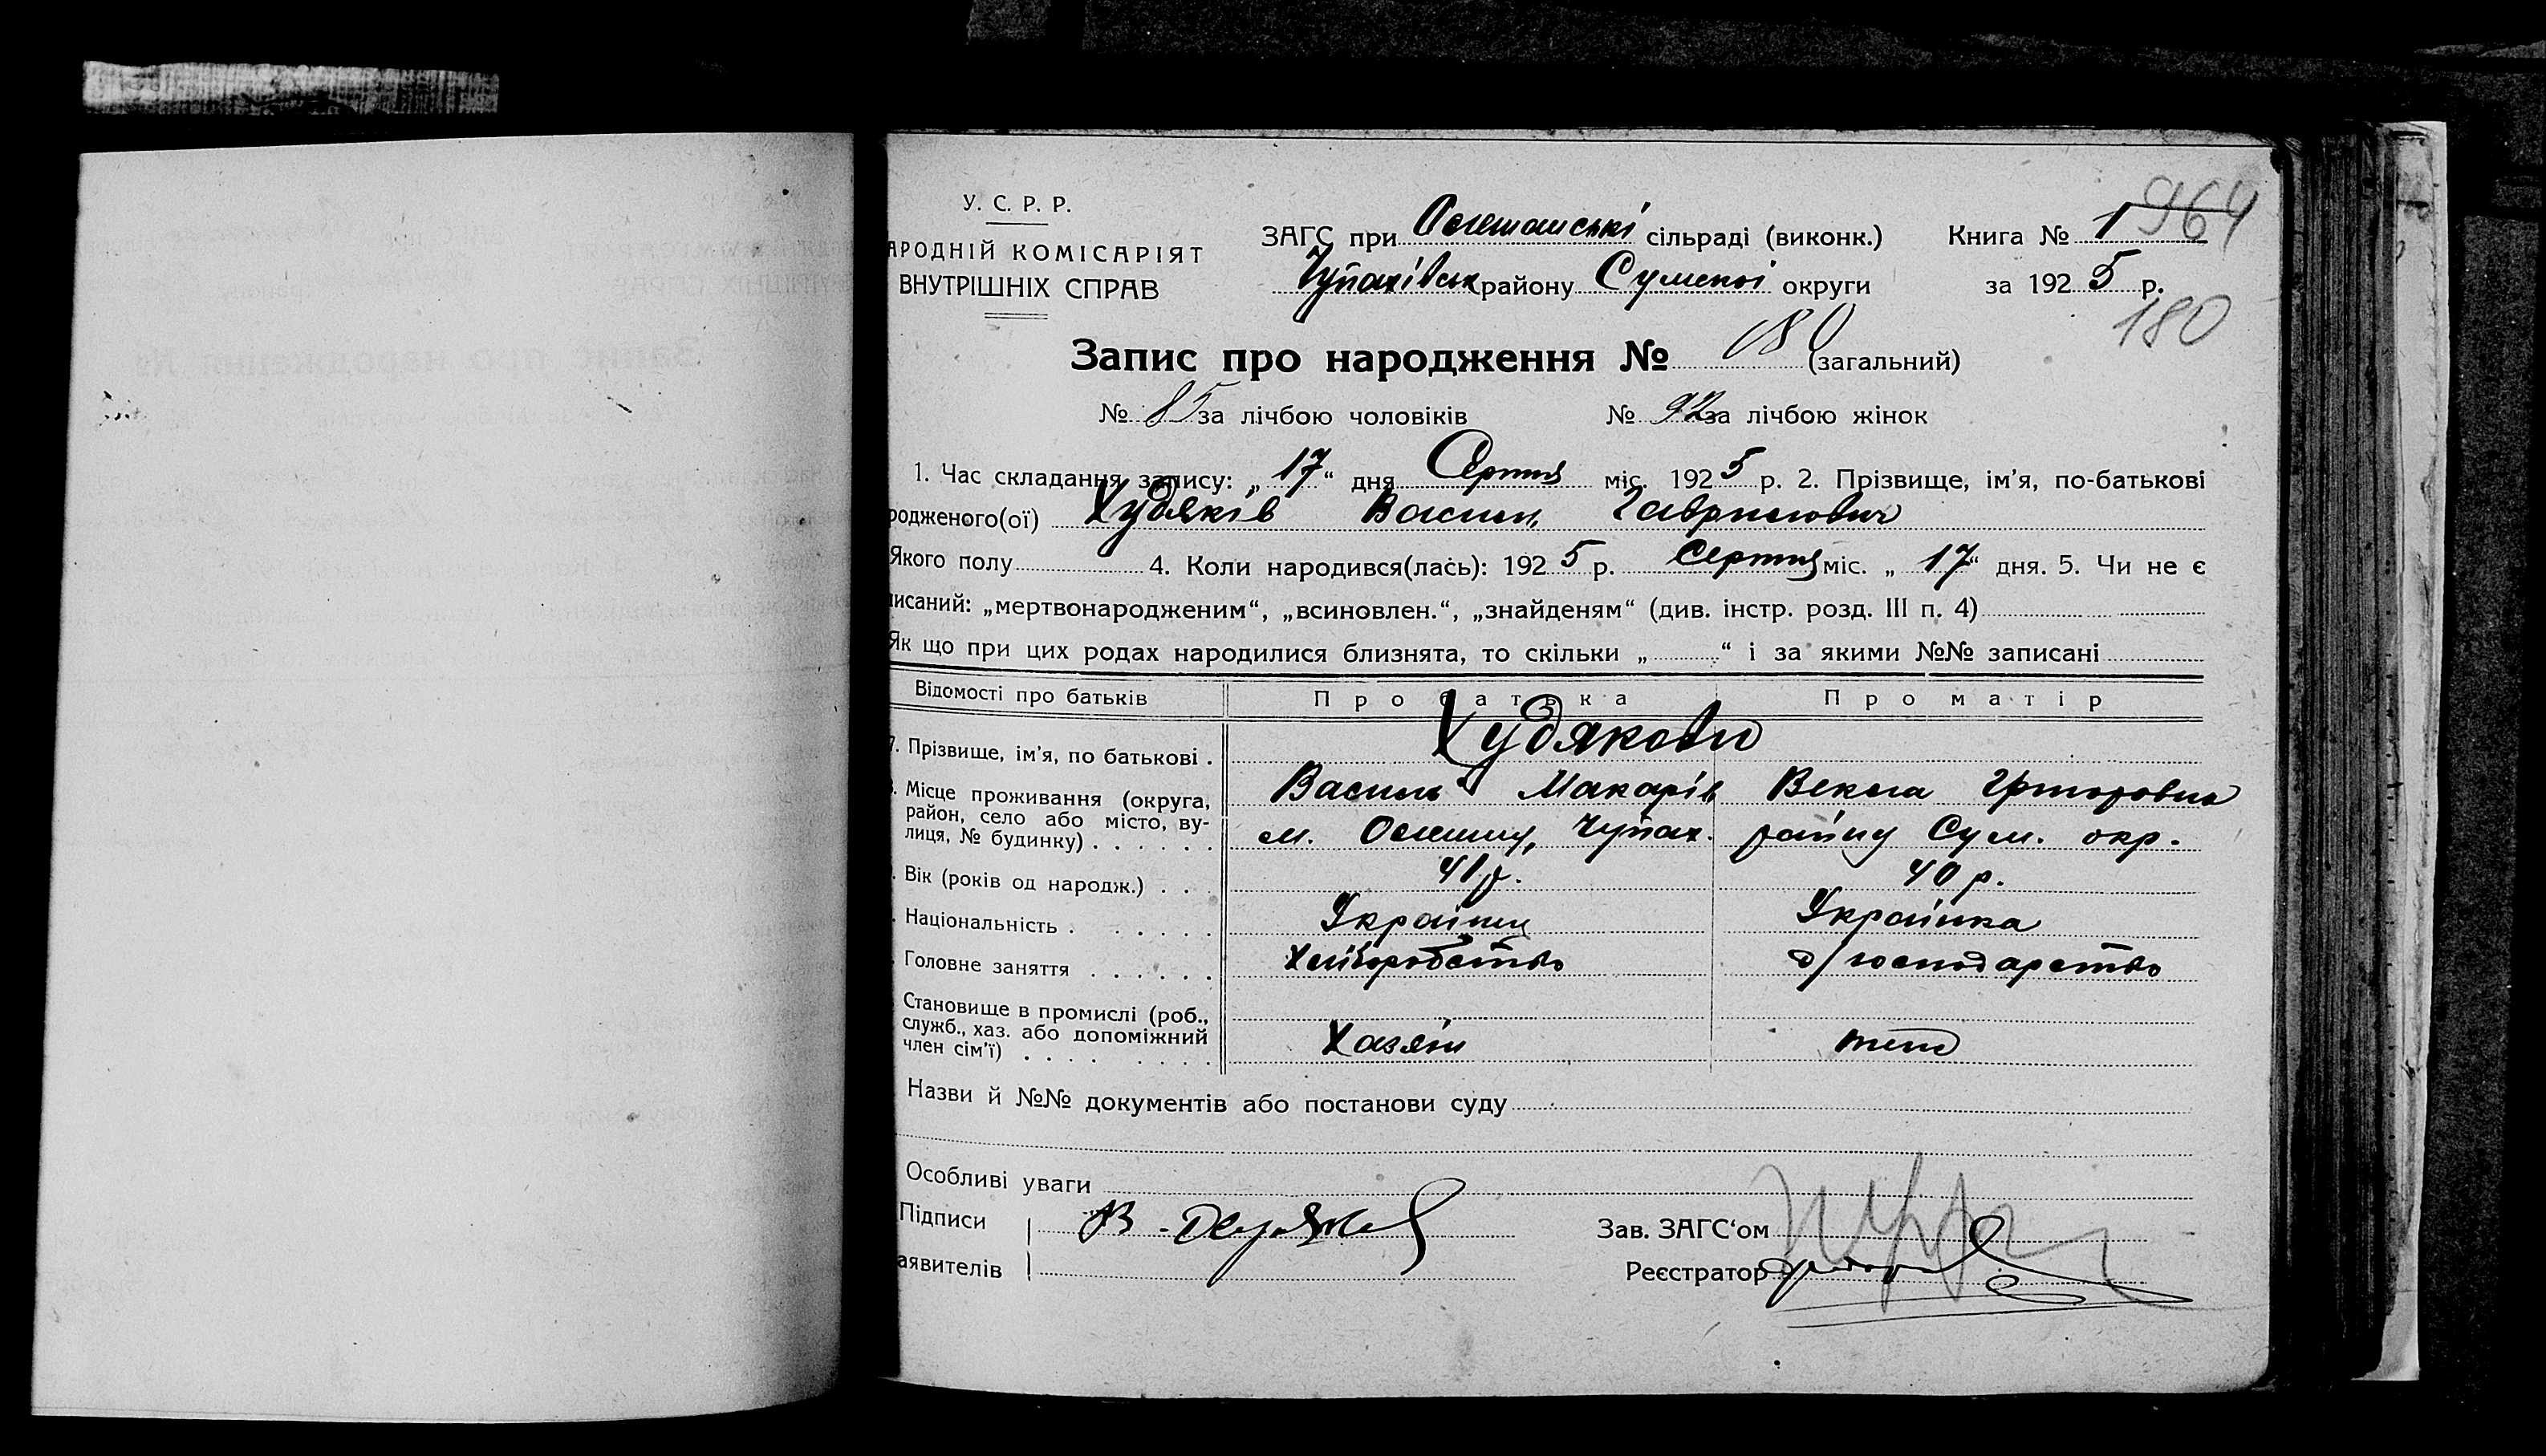 964
У. С. Р. Р.
АРОДНІЙ КОМІСАРІЯТ
ВНУТРІШНІХ СПРАВ
ЗАГС при Олешанські сільраді (виконк.) Книга № 1
Чупахівськ району Сумської округи за 1925 р.
180
Запис про народження № 180 (загальний)
№ 85 за лічбою чоловіків № 92 за лічбою жінок
1. Час складання запису: „17“ дня Серпня міс. 1925 р. 2. Прізвище, ім'я, по-батькові
родженого(ої) Худяків Василь Гаврилович
Якого полу 4. Коли народився(лась): 1925 р. Серпня міс. „17“ дня. 5. Чи не є
писаний: „мертвонародженим“, „всиновлен.“, „знайденям“ (див. інстр. розд. III п. 4)
Як що при цих родах народилися близнята, то скільки „ “ і за якими №№ записані
Відомості про батьків Про батька Про матір
7. Прізвище, ім'я, по батькові . Худякови
Василь Макарів Векла Григоровна
. Місце проживання (округа, район, село або місто, вулиця, № будинку) . . . . . . м. Олешня, Чупах. району Сум. окр.
. Вік (років од народж.) . . . 41 р. 40 р.
. Національність . . . . . . Українець Українка
. Головне заняття . . . . . . Хліборобство д/господарство
Становище в промислі (роб., служб., хаз. або допоміжний член сім'ї) . . . . . . . . Хазяін
Назви й №№ документів або постанови суду
Особливі уваги
Підписи В.
аявителів
Зав. ЗАГС'ом
Реєстратор